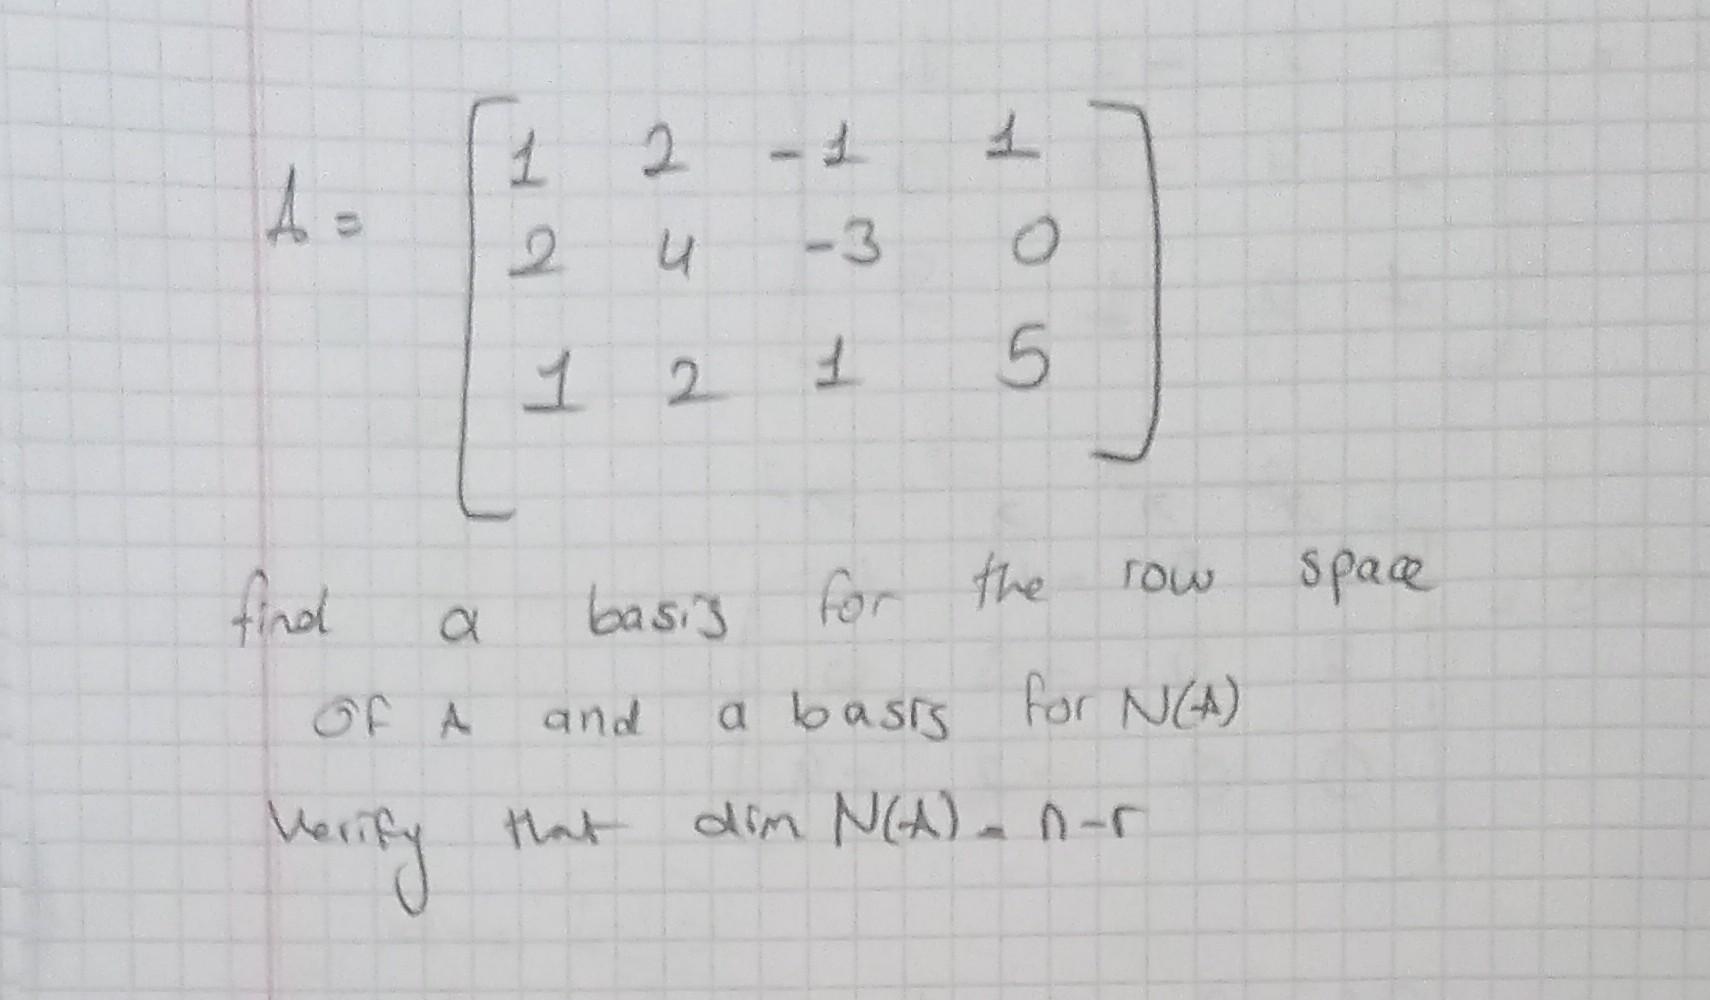 A = [ 1 2 -1 1
2 4 -3 0
1 2 1 5 ]
find a basis for the row space
of A and a basis for N(A)
Verify that dim N(A) = n-r